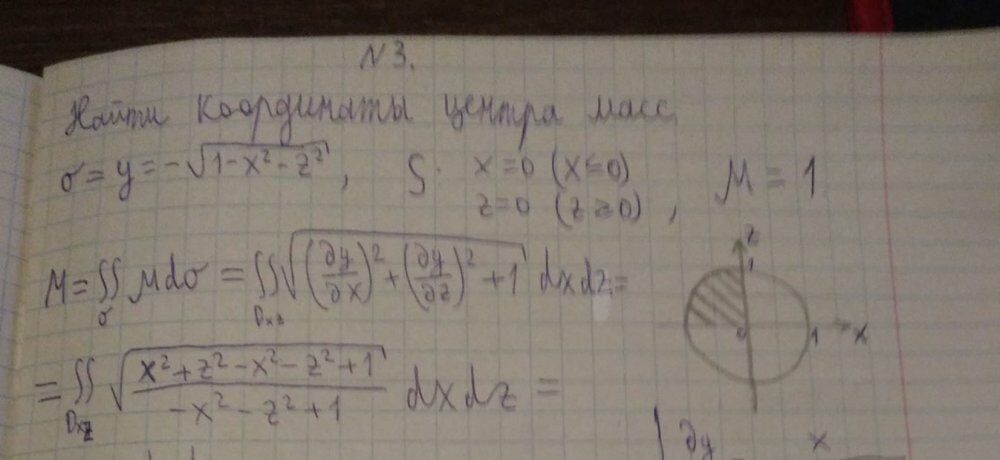 N 3.
Найти координаты центра масс
σ = y = -√(1-x²-z²), S: x=0 (x≤0)
z=0 (z≥0), μ = 1
M = ∬_σ μdσ = ∬_Dxz √((∂y/∂x)² + (∂y/∂z)² + 1) dxdz =
z
1
0
1
x
= ∬_Dxz √((x²+z²-x²-z²+1)/(-x²-z²+1)) dxdz =
∂y x